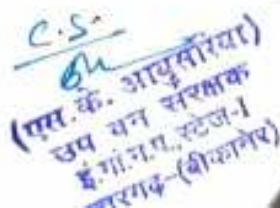 C.S.
(एस.के. आबुसरिया)
उप वन संरक्षक
इं.गां.न.प. स्टेज-I
छत्तरगढ़-(बीकानेर)